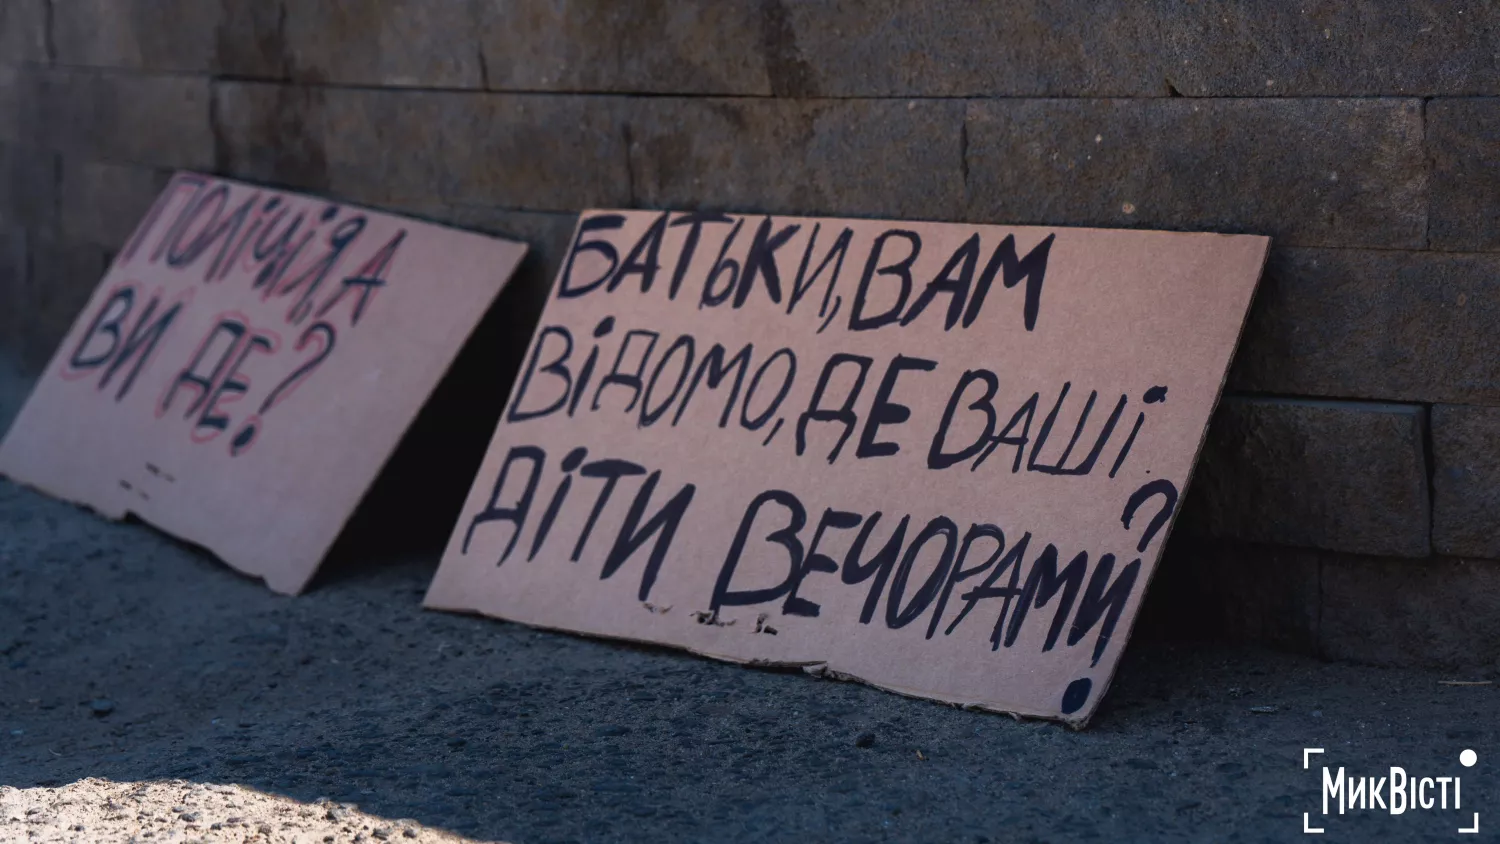 ПОЛІЦІЯ, А
ВИ ДЕ?
БАТЬКИ, ВАМ
ВІДОМО, ДЕ ВАШІ
ДІТИ ВЕЧОРАМИ?
МикВісті